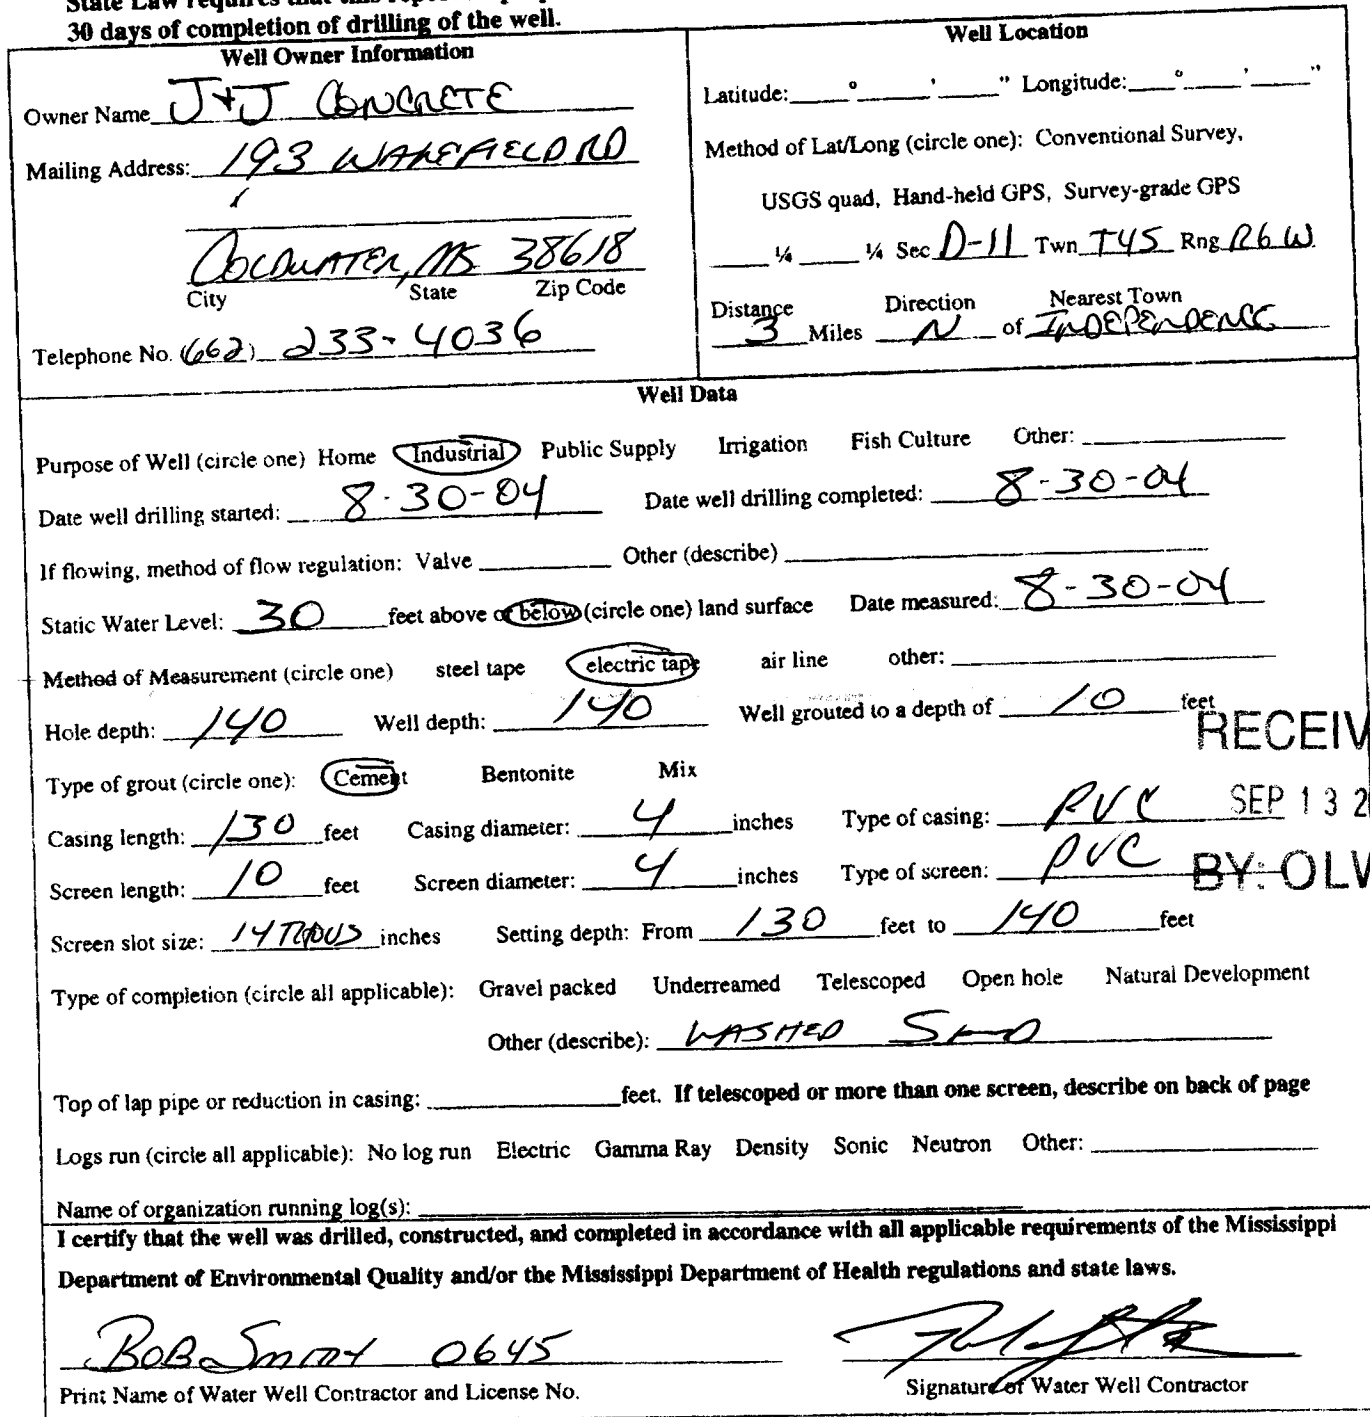 30 days of completion of drilling of the well.
Well Owner Information
Owner Name J+J CONCRETE
Mailing Address: 193 WAKEFIELD RD
COLDWATER, MS 38618
City State Zip Code
Telephone No. (662) 233-4036
Well Location
Latitude: ° ' " Longitude: ° ' "
Method of Lat/Long (circle one): Conventional Survey,
USGS quad, Hand-held GPS, Survey-grade GPS
¼ ¼ Sec D-11 Twn T4S Rng R6W
Distance Direction Nearest Town
3 Miles N of INDEPENDENCE
Well Data
Purpose of Well (circle one) Home Industrial Public Supply Irrigation Fish Culture Other:
Date well drilling started: 8-30-04 Date well drilling completed: 8-30-04
If flowing, method of flow regulation: Valve Other (describe)
Static Water Level: 30 feet above or below (circle one) land surface Date measured: 8-30-04
Method of Measurement (circle one) steel tape electric tape air line other:
Hole depth: 140 Well depth: 140 Well grouted to a depth of 10 feet
RECEIV
Type of grout (circle one): Cement Bentonite Mix
Casing length: 130 feet Casing diameter: 4 inches Type of casing: PVC
SEP 13 2
Screen length: 10 feet Screen diameter: 4 inches Type of screen: PVC
BY: OLW
Screen slot size: inches Setting depth: From 130 feet to 140 feet
Type of completion (circle all applicable): Gravel packed Underreamed Telescoped Open hole Natural Development
Other (describe): WASHED SAND
Top of lap pipe or reduction in casing: feet. If telescoped or more than one screen, describe on back of page
Logs run (circle all applicable): No log run Electric Gamma Ray Density Sonic Neutron Other:
Name of organization running log(s):
I certify that the well was drilled, constructed, and completed in accordance with all applicable requirements of the Mississippi
Department of Environmental Quality and/or the Mississippi Department of Health regulations and state laws.
BOB SMITH 0645
Print Name of Water Well Contractor and License No.
Signature of Water Well Contractor